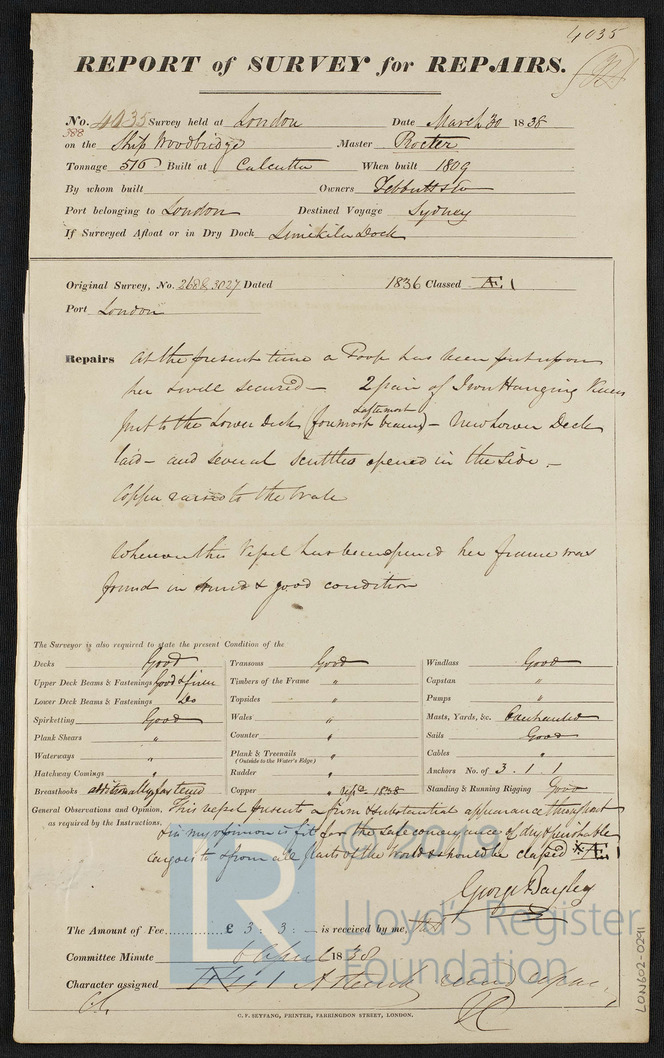 4035
REPORT of SURVEY for REPAIRS.
No. 4035 Survey held at London Date March 30 1838
388
on the Ship Woodbridge Master Procter
Tonnage 516 Built at Calcutta When built 1809
By whom built Owners Tebbutts & Co
Port belonging to London Destined Voyage Sydney
If Surveyed Afloat or in Dry Dock Limekiln Dock
Original Survey, No. 268 & 3027 Dated 1836 Classed Æ 1
Port London
Repairs At the present time a Poop has been put upon
her & well secured — 2 pair of Iron Hanging Knees
& aftermost
put to the Lower Deck (foremost beams) — New Lower Deck
laid — and several scuttles opened in the side —
Copper raised to the Wale
Wherever this Vessel has been opened her frame was
found in sound & good condition
The Surveyor is also required to state the present Condition of the
Decks Good Transoms Good Windlass Good
Upper Deck Beams & Fastenings Good & firm Timbers of the Frame " Capstan "
Lower Deck Beams & Fastenings Do Topsides " Pumps "
Spirketting Good Wales " Masts, Yards, &c.
Plank Shears " Counter " Sails Good
Waterways " Plank & Treenails " Cables "
(Outside to the Water's Edge)
Hatchway Comings " Rudder " Anchors No. of 3 . 1 . 1
Breasthooks additionally fastened Copper " 1838 Standing & Running Rigging Good
General Observations and Opinion, This vessel presents a firm & substantial appearance throughout
as required by the Instructions. & in my opinion is fit for the safe conveyance of dry & perishable
cargoes to & from all parts of the World & should be classed * Æ 1
George Bayley
The Amount of Fee............ £ 3 : 3 : — is received by me,
Committee Minute 6 April 1838
Character assigned
C. F. SEYFANG, PRINTER, FARRINGDON STREET, LONDON.
© 2019
LR
Lloyd's Register
Foundation
LON602-0291